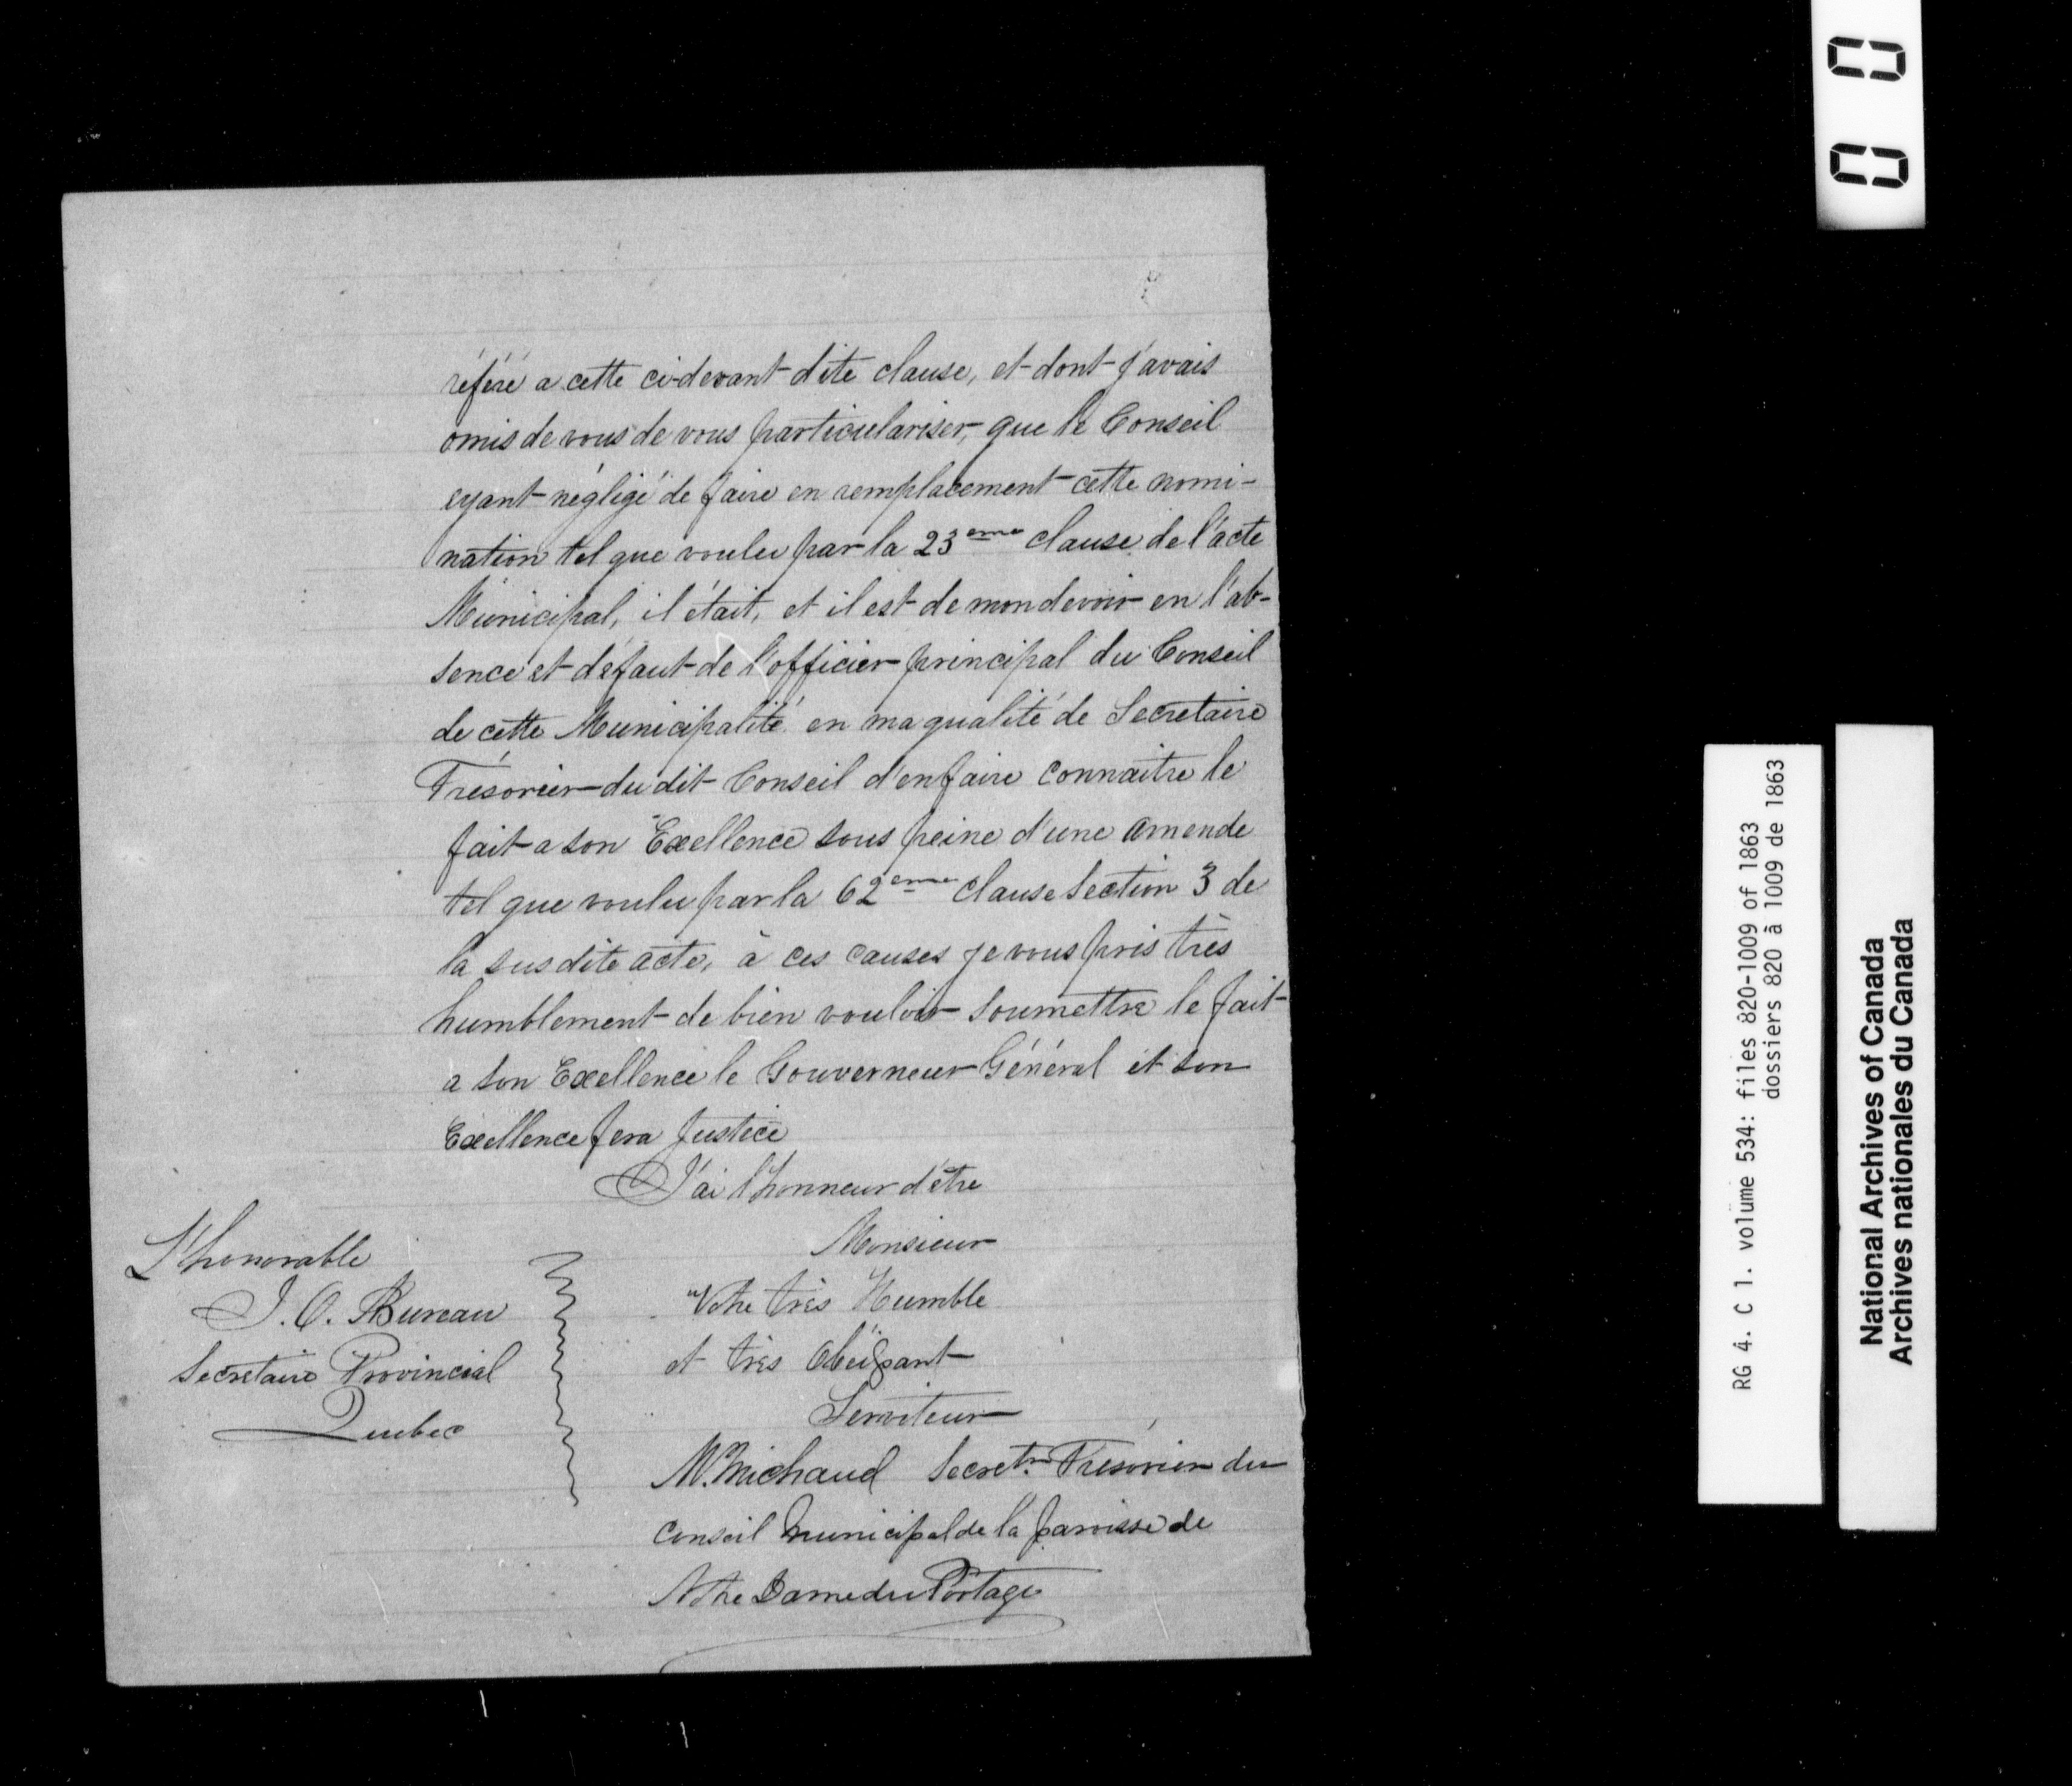 référé a cette ci-devant dite clause, et dont j'avais
omis de vous de vous particulariser, que le Conseil
eyant négligé de faire en remplacement cette nomi-
nation tel que voulu par la 23eme clause de l'acte
Municipal, il était, et il est de mon devoir en l'ab-
sence et défaut de l'officier principal du Conseil
de cette Municipalité en ma qualité de Secretaire
Trésorier du dit Conseil d'en faire connaitre le
fait a son Exellence sous peine d'une amende
tel que voulu par la 62eme clause Section 3 de
la susdite acte, à ces causes je vous pris très
humblement de bien vouloir soumettre le fait
a son Exellence le Gouverneur Général et son
Exellence fera Justice
J'ai l'honneur d'être
Monsieur
Votre très Humble
et très Obéissant
Serviteur
M. Michaud Secret.re Trésorier du
Conseil Municipal de la paroisse de
Notre Dame du Portage
L'honorable
J. O. Bureau
Secretaire Provincial
Quebec
RG 4. C 1. volume 534: files 820-1009 of 1863
dossiers 820 à 1009 de 1863
National Archives of Canada
Archives nationales du Canada
00